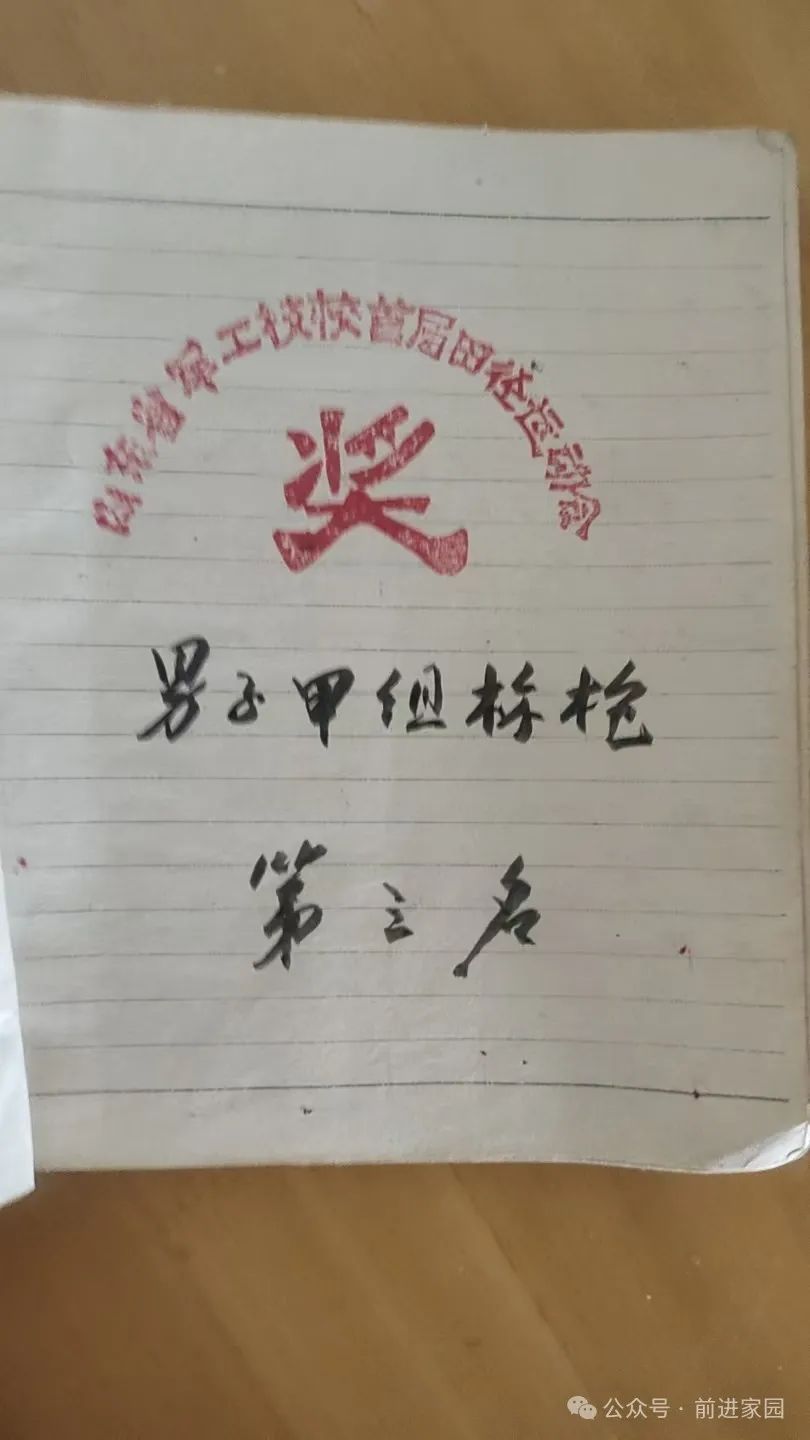 山东省军工技校首届田径运动会
奖
男子甲组标枪
第三名
公众号·前进家园